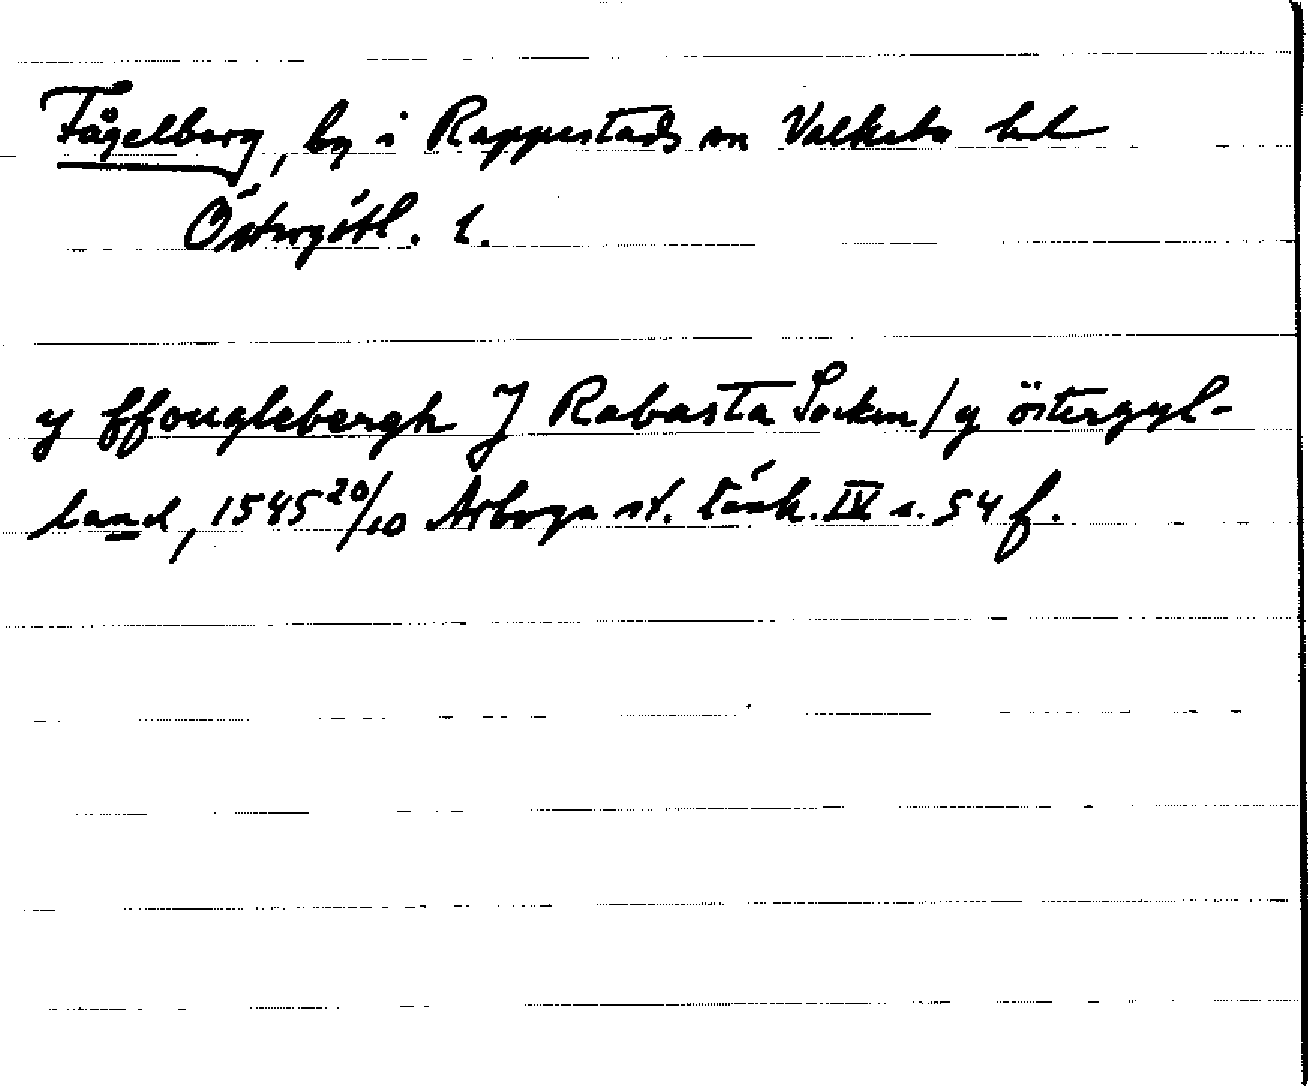 Fågelberg, by i Rappestads sn Valkebo hd
Östergötl. l.
y ffouglebergh J Rabasta Socken / y östergyl-
land, 1545 20/10 Arboga st. tänk. IV s. 54 f.